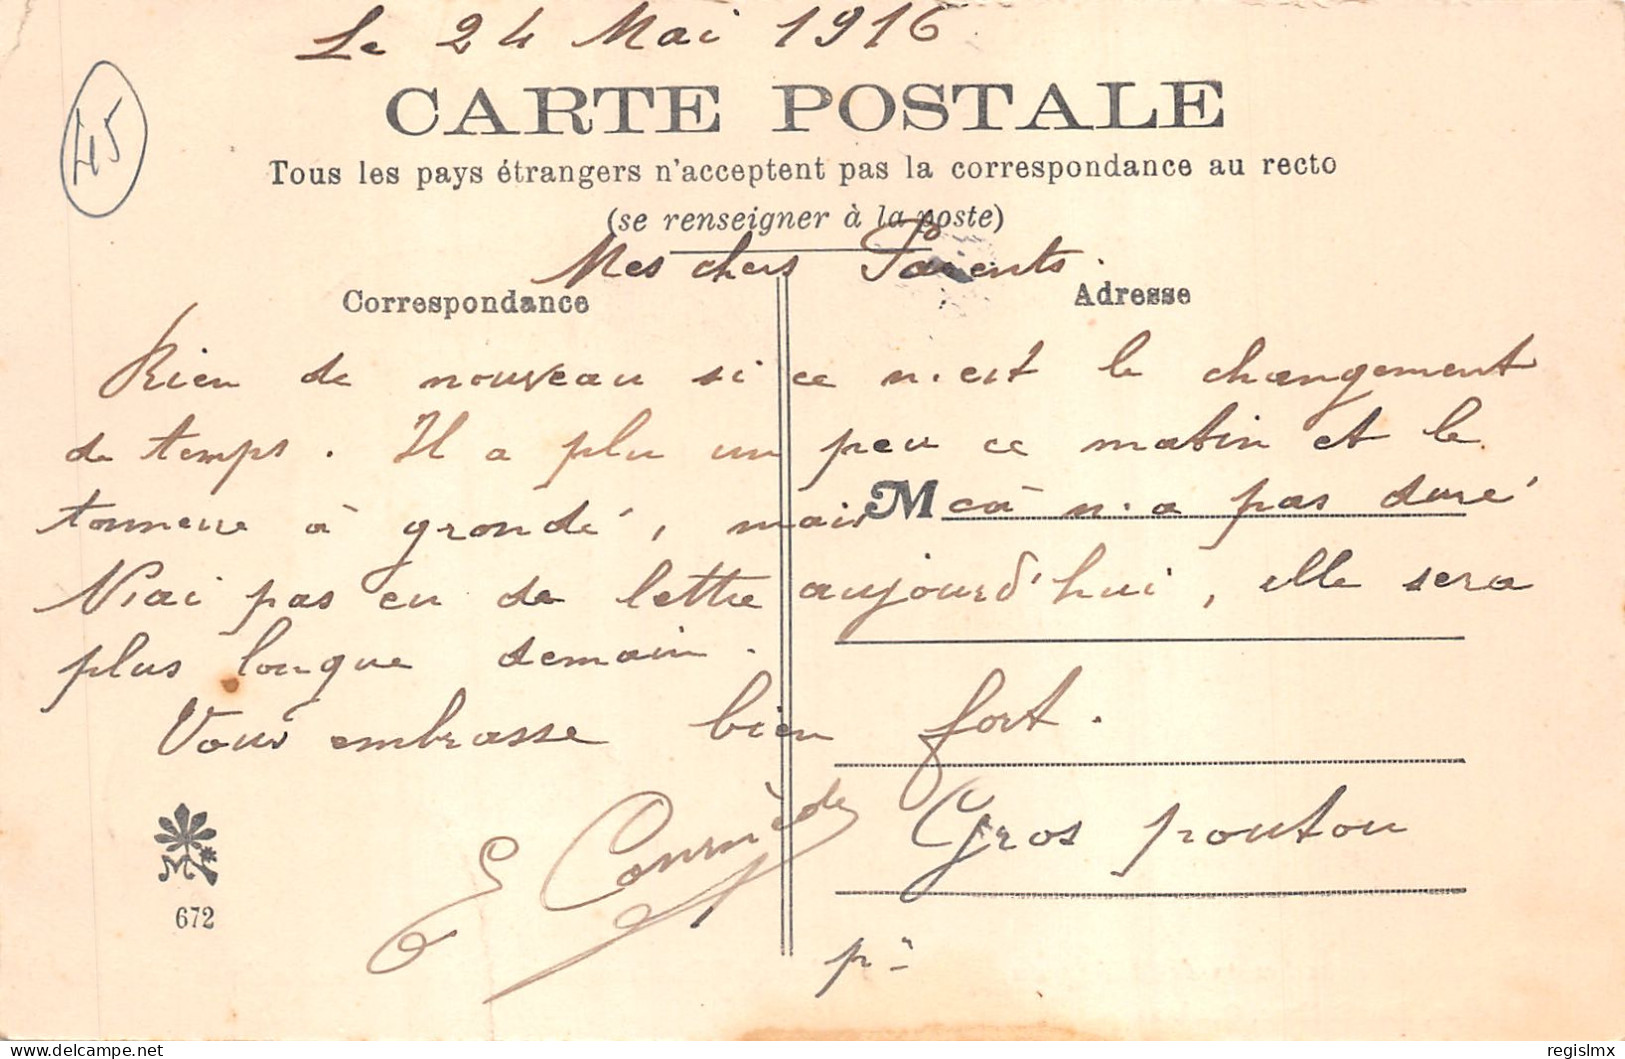 Le 24 Mai 1916
CARTE POSTALE
Tous les pays étrangers n'acceptent pas la correspondance au recto
(se renseigner à la poste)
45
Mes chers Parents.
Correspondance
Adresse
Rien de nouveau si ce n'est le changement
de temps. Il a plu un peu ce matin et le
tonnerre à grondé, mais cà n'a pas duré
M
N'ai pas eu de lettre aujourd'hui, elle sera
plus longue demain.
Vous embrasse bien fort.
E
Gros poutou
M
672
delcampe.net
regislmx